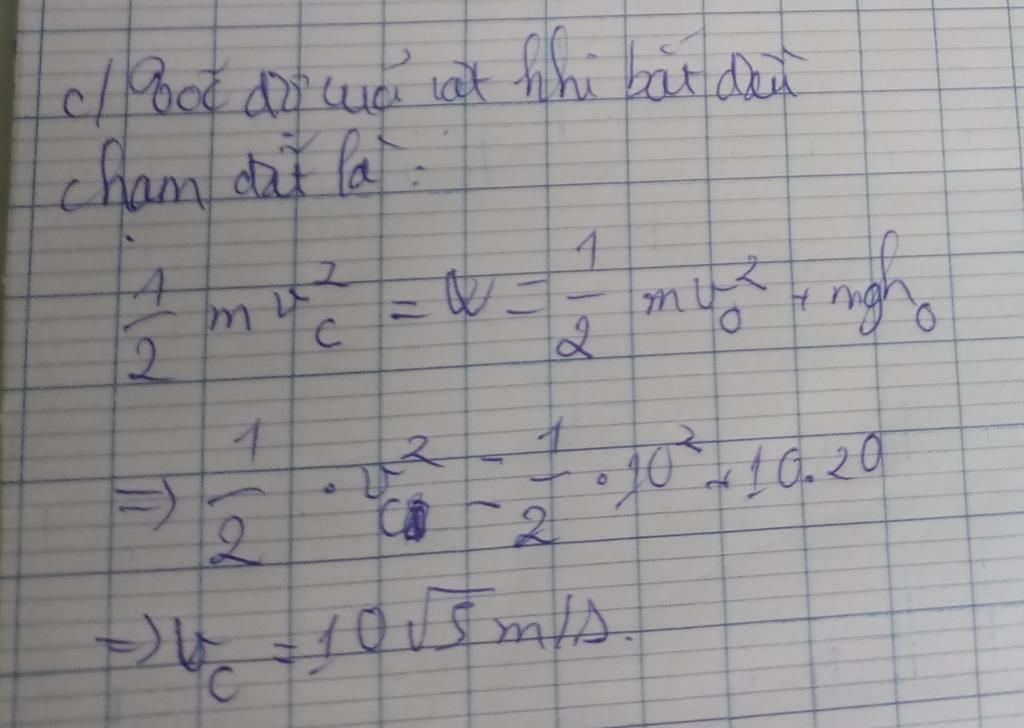 c/ Tốc độ của vật khi bắt đầu
chạm đất là:
1/2 m v_c^2 = W = 1/2 m v_0^2 + mgh_0
=> 1/2 . v_c^2 = 1/2 . 10^2 + 10.20
=> v_c = 10√5 m/s.